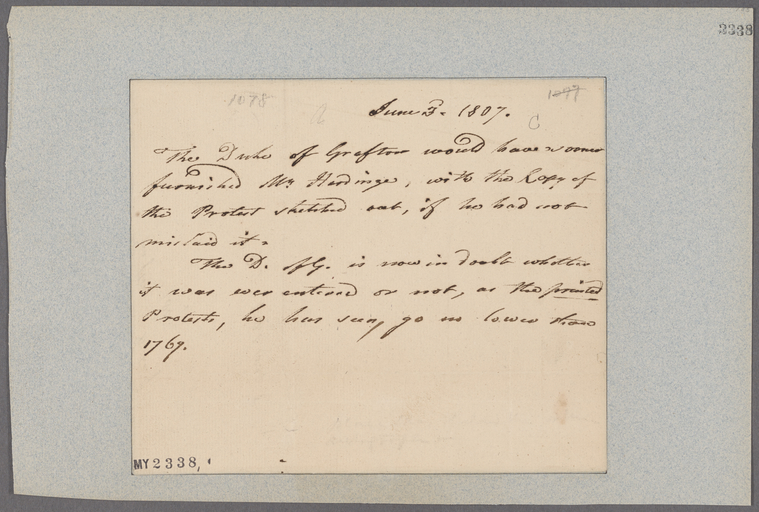 3338
1078
1077
June 3. 1807.
C
The Duke of Grafton would have sooner
furnished Mr. Hardinge, with the Copy of
the Protest sketched out, if he had not
mislaid it.
The D. of G. is now in doubt whether
it was ever entered or not, as the printed
Protests, he has seen, go no lower than
1769.
MY2338,